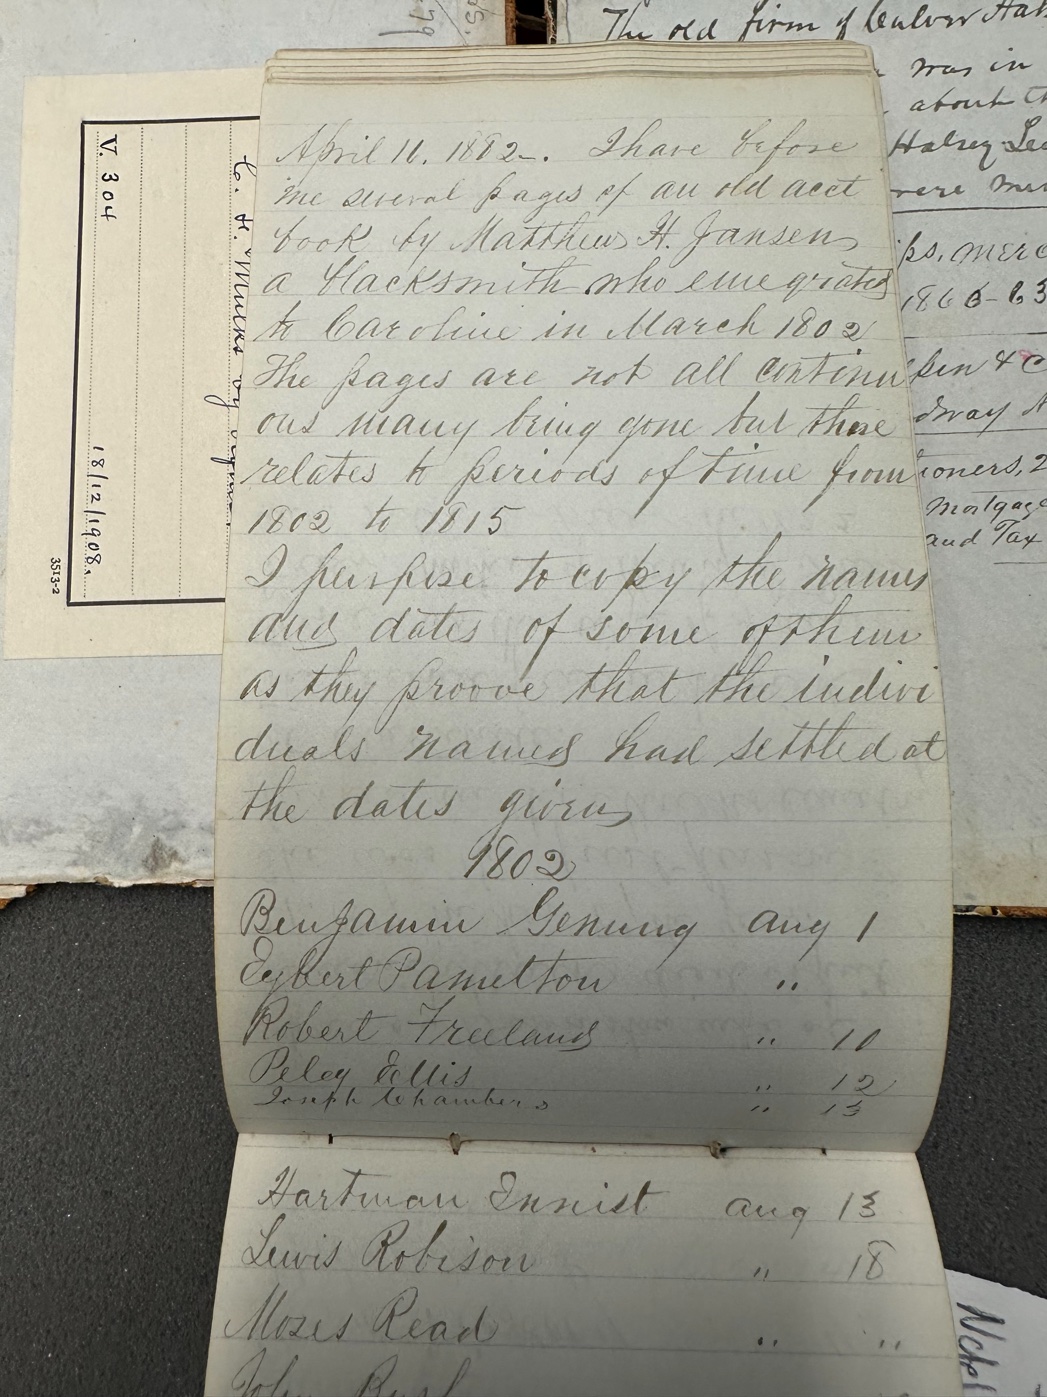 The old firm of Culver Hals
was in
about th
Halsey
were
ps, merc
186
& C
dway
ioners, 2
Mortgage
and Tax
V. 304
18/12/1908.
3513-2
April 11. 1882. I have before
me several pages of an old acct
book by Matthew H. Jansen
a blacksmith who emegrated
to Caroline in March 1802
The pages are not all continu
ous many being gone but those
relates to periods of time from
1802 to 1815
I perpose to copy the names
and dates of some of them
as they proove that the indivi
duals named had settled at
the dates given
1802
Benjamin Genung aug 1
Egbert Pamelton "
Robert Freeland " 10
Peleg Ellis " 12
Joseph Chambers " 13
Hartman Ennist aug 13
Lewis Robison " 18
Moses Read " "
John